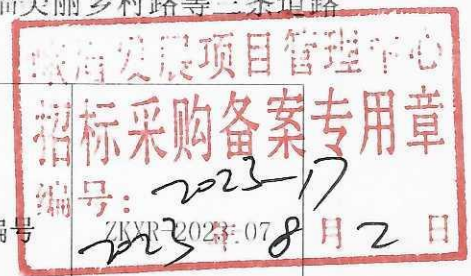 美丽乡村路等三条道路
发展项目管理中心
招标采购备案专用章
编号：2023-17
编号 ZKXR-2023-07
2023年8月2日